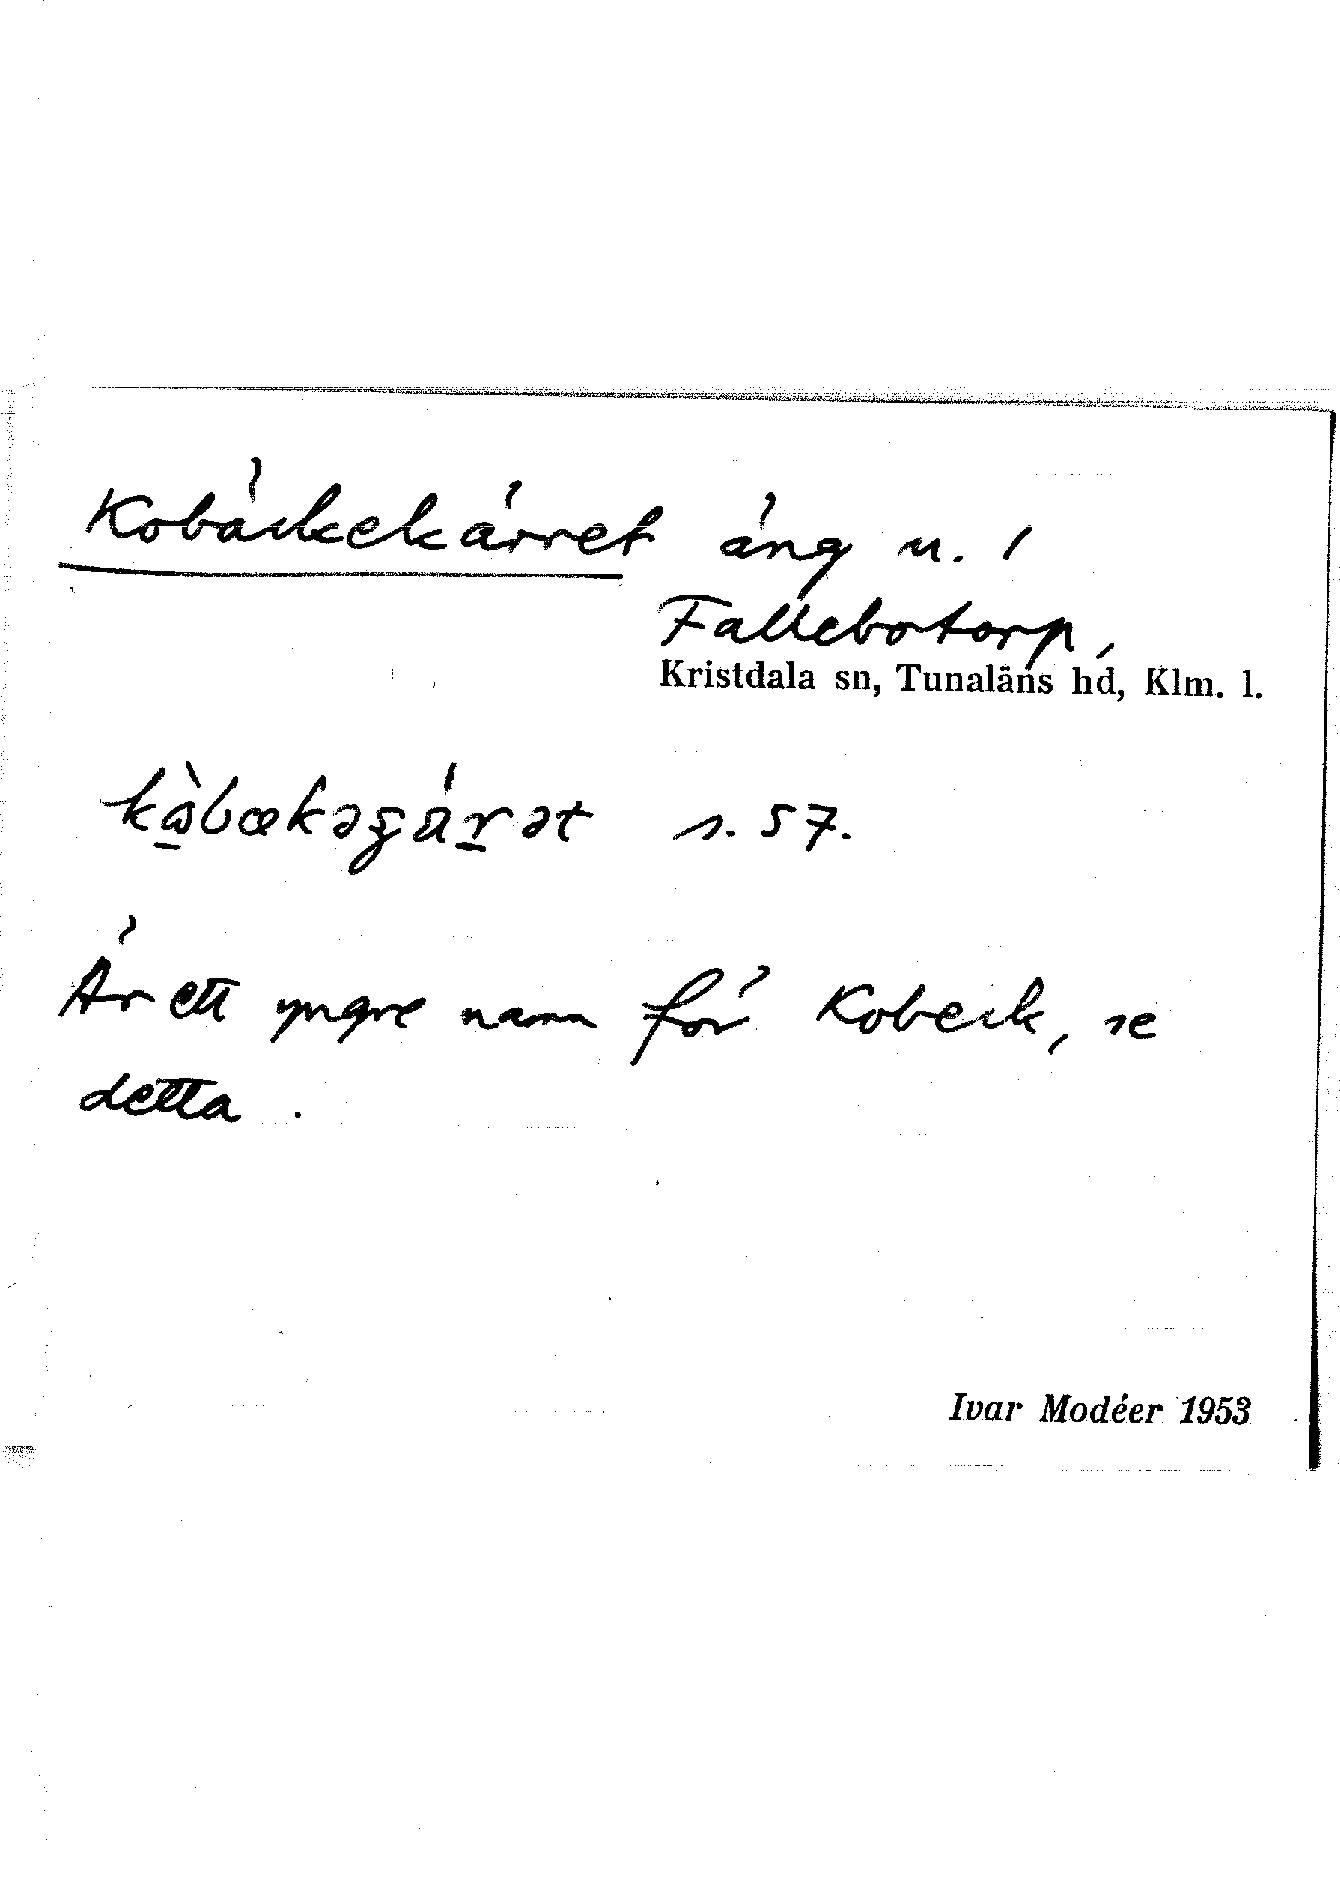 Kobäckekärret äng u. /
Fallebotorp,
Kristdala sn, Tunaläns hd, Klm. l.
s. 57.
Är ett yngre namn för Kobeck, se
detta.
Ivar Modéer 1953